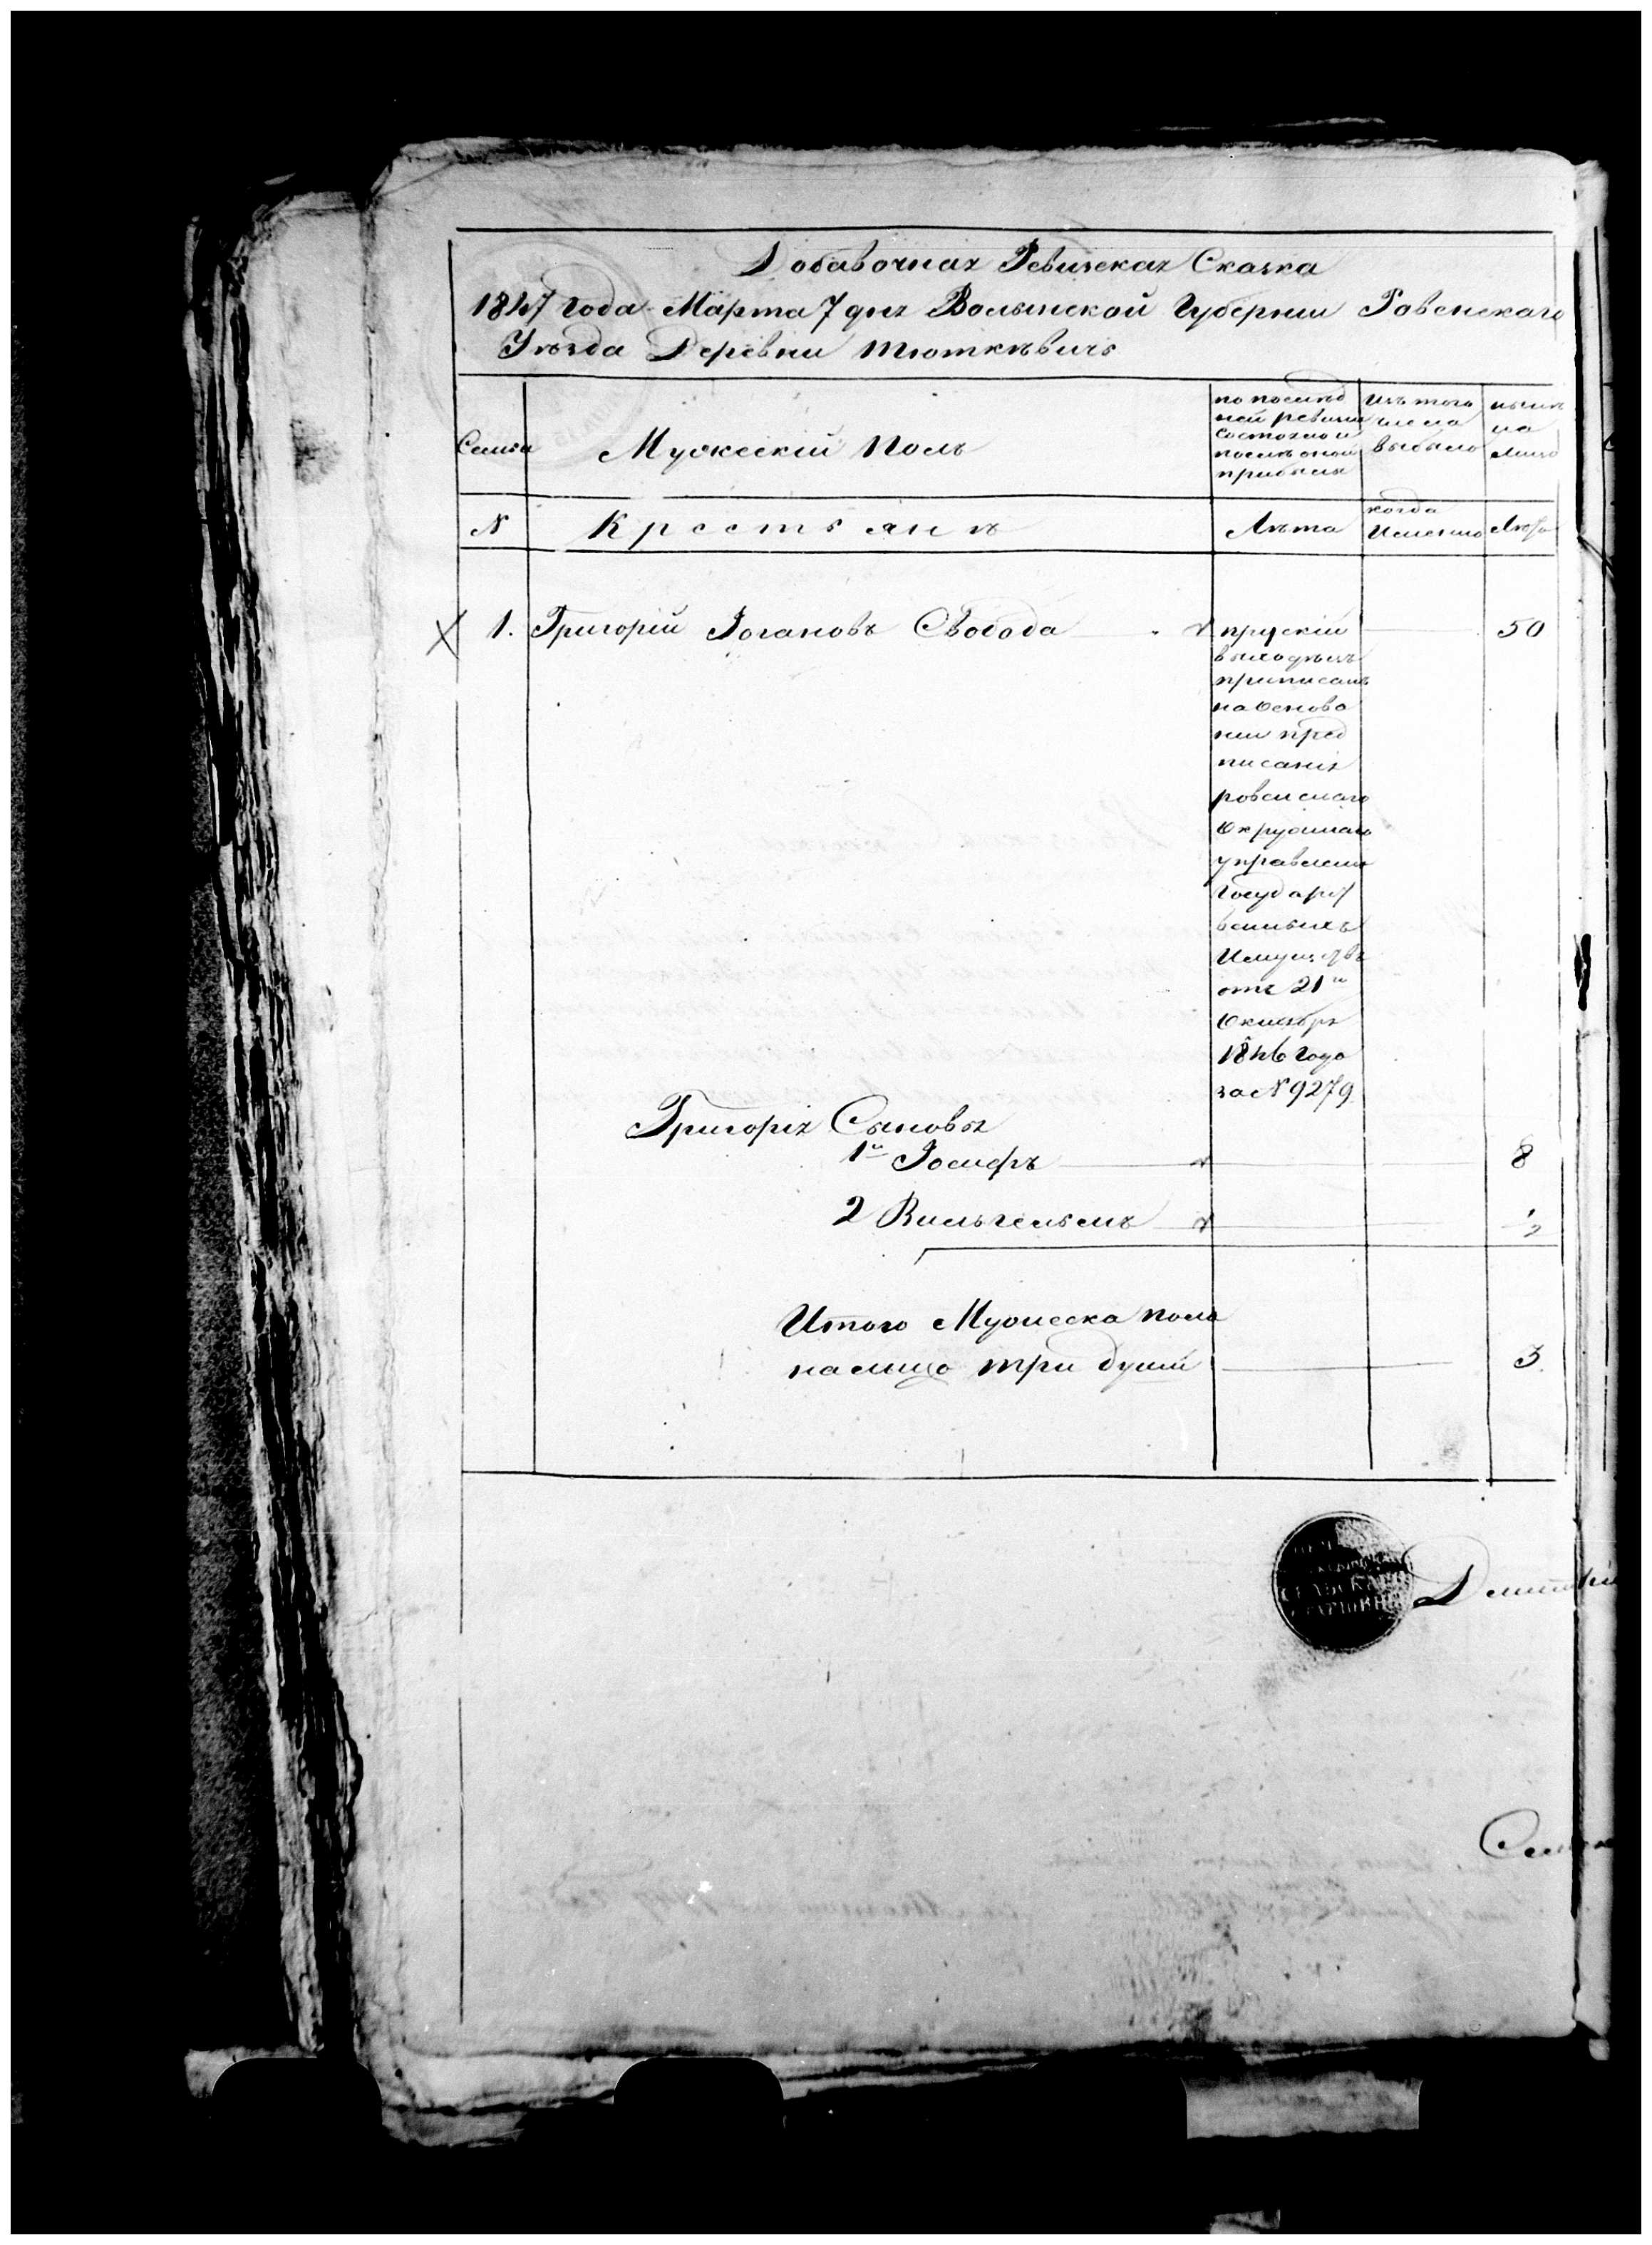 Добавочная Ревизская Сказка
1847 года Марта 7 дня Волынской Губернии Ровенскаго
Уѣзда Деревни Тюткѣвичъ
Семьи
Мужескій Полъ
по послѣд
ней ревизіи
состояло и
послѣ оной
прибыло
Изъ того
числа
выбыло
нынѣ
на
лицо
N
Крестьянъ
Лѣта
когда
Именно
Лѣта
1. Григорій Іогановъ Свобода
50
прускій
выходецъ
приписанъ
на основа
ніи пред
писанія
ровенскаго
Окружнаго
управленія
Государст
венныхъ
Имуществъ
отъ 21го
Октября
1846 года
за N 9279
Григорія Сыновья
1й Іосифъ
8
2 Вильгельмъ
1/2
Итого Мужеска пола
налицо три души
3.
СЕЛЬСКАГО
Дмитрій